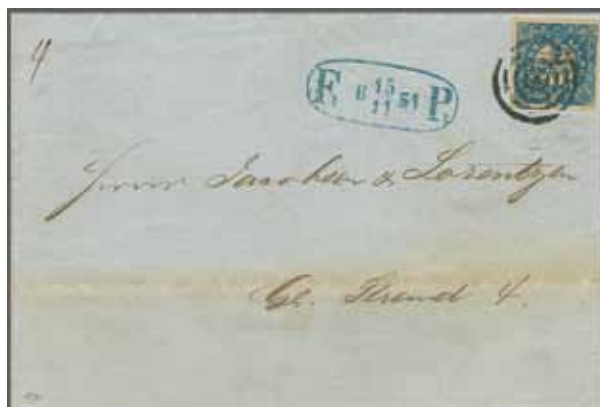 4
F. B 15/11 51 P.
Herrer Jacobsen & Lorentzen
Gl. Strand 4.